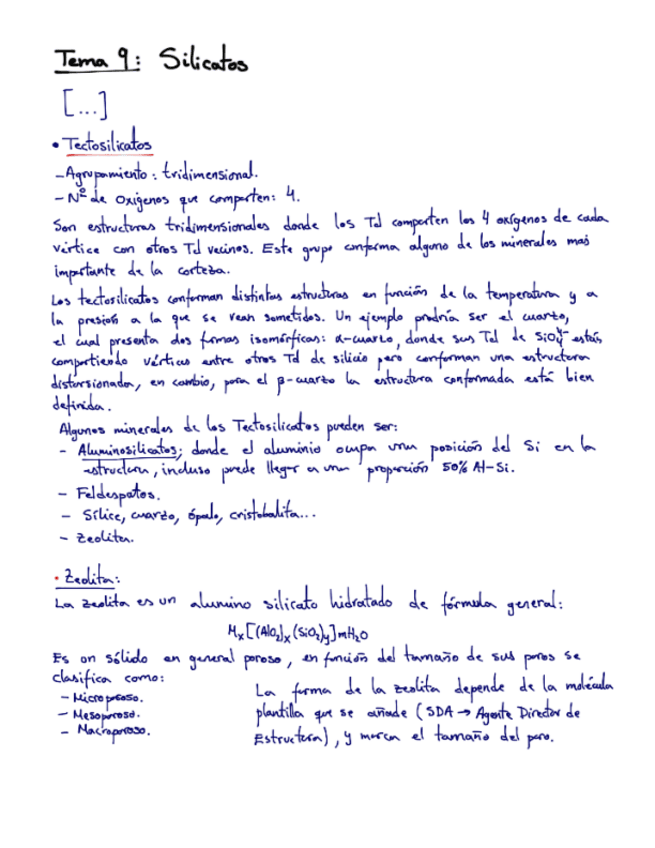 Tema 9: Silicatos
[...]
• Tectosilicatos
- Agrupamiento: tridimensional.
- Nº de oxigenos que comparten: 4.
Son estructuras tridimensionales donde los Td comparten los 4 oxígenos de cada
vértice con otros Td vecinos. Este grupo conforma alguno de los minerales mas
importante de la corteza.
Los tectosilicatos conforman distintas estructuras en función de la temperatura y a
la presión a la que se vean sometidos. Un ejemplo podría ser el cuarzo,
el cual presenta dos formas isomórficas: α-cuarzo, donde sus Td de SiO₄⁴⁻ están
compartiendo vértices entre otros Td de silicio pero conforman una estructura
distorsionada, en cambio, para el β-cuarzo la estructura conformada está bien
definida.
Algunos minerales de los Tectosilicatos pueden ser:
- Aluminosilicatos; donde el aluminio ocupa una posición del Si en la
estructura, incluso puede llegar a una proporción 50% Al-Si.
- Feldespatos.
- Sílice, cuarzo, ópalo, cristobalita...
- Zeolita.
• Zeolita:
La zeolita es un alumino silicato hidratado de fórmula general:
Mₓ[(AlO₂)ₓ(SiO₂)ᵧ]mH₂O
Es un sólido en general poroso, en función del tamaño de sus poros se
clasifica como:
- Microporoso.
- Mesoporoso.
- Macroporoso.
La forma de la zeolita depende de la molécula
plantilla que se añade (SDA → Agente Director de
Estructura), y marca el tamaño del poro.